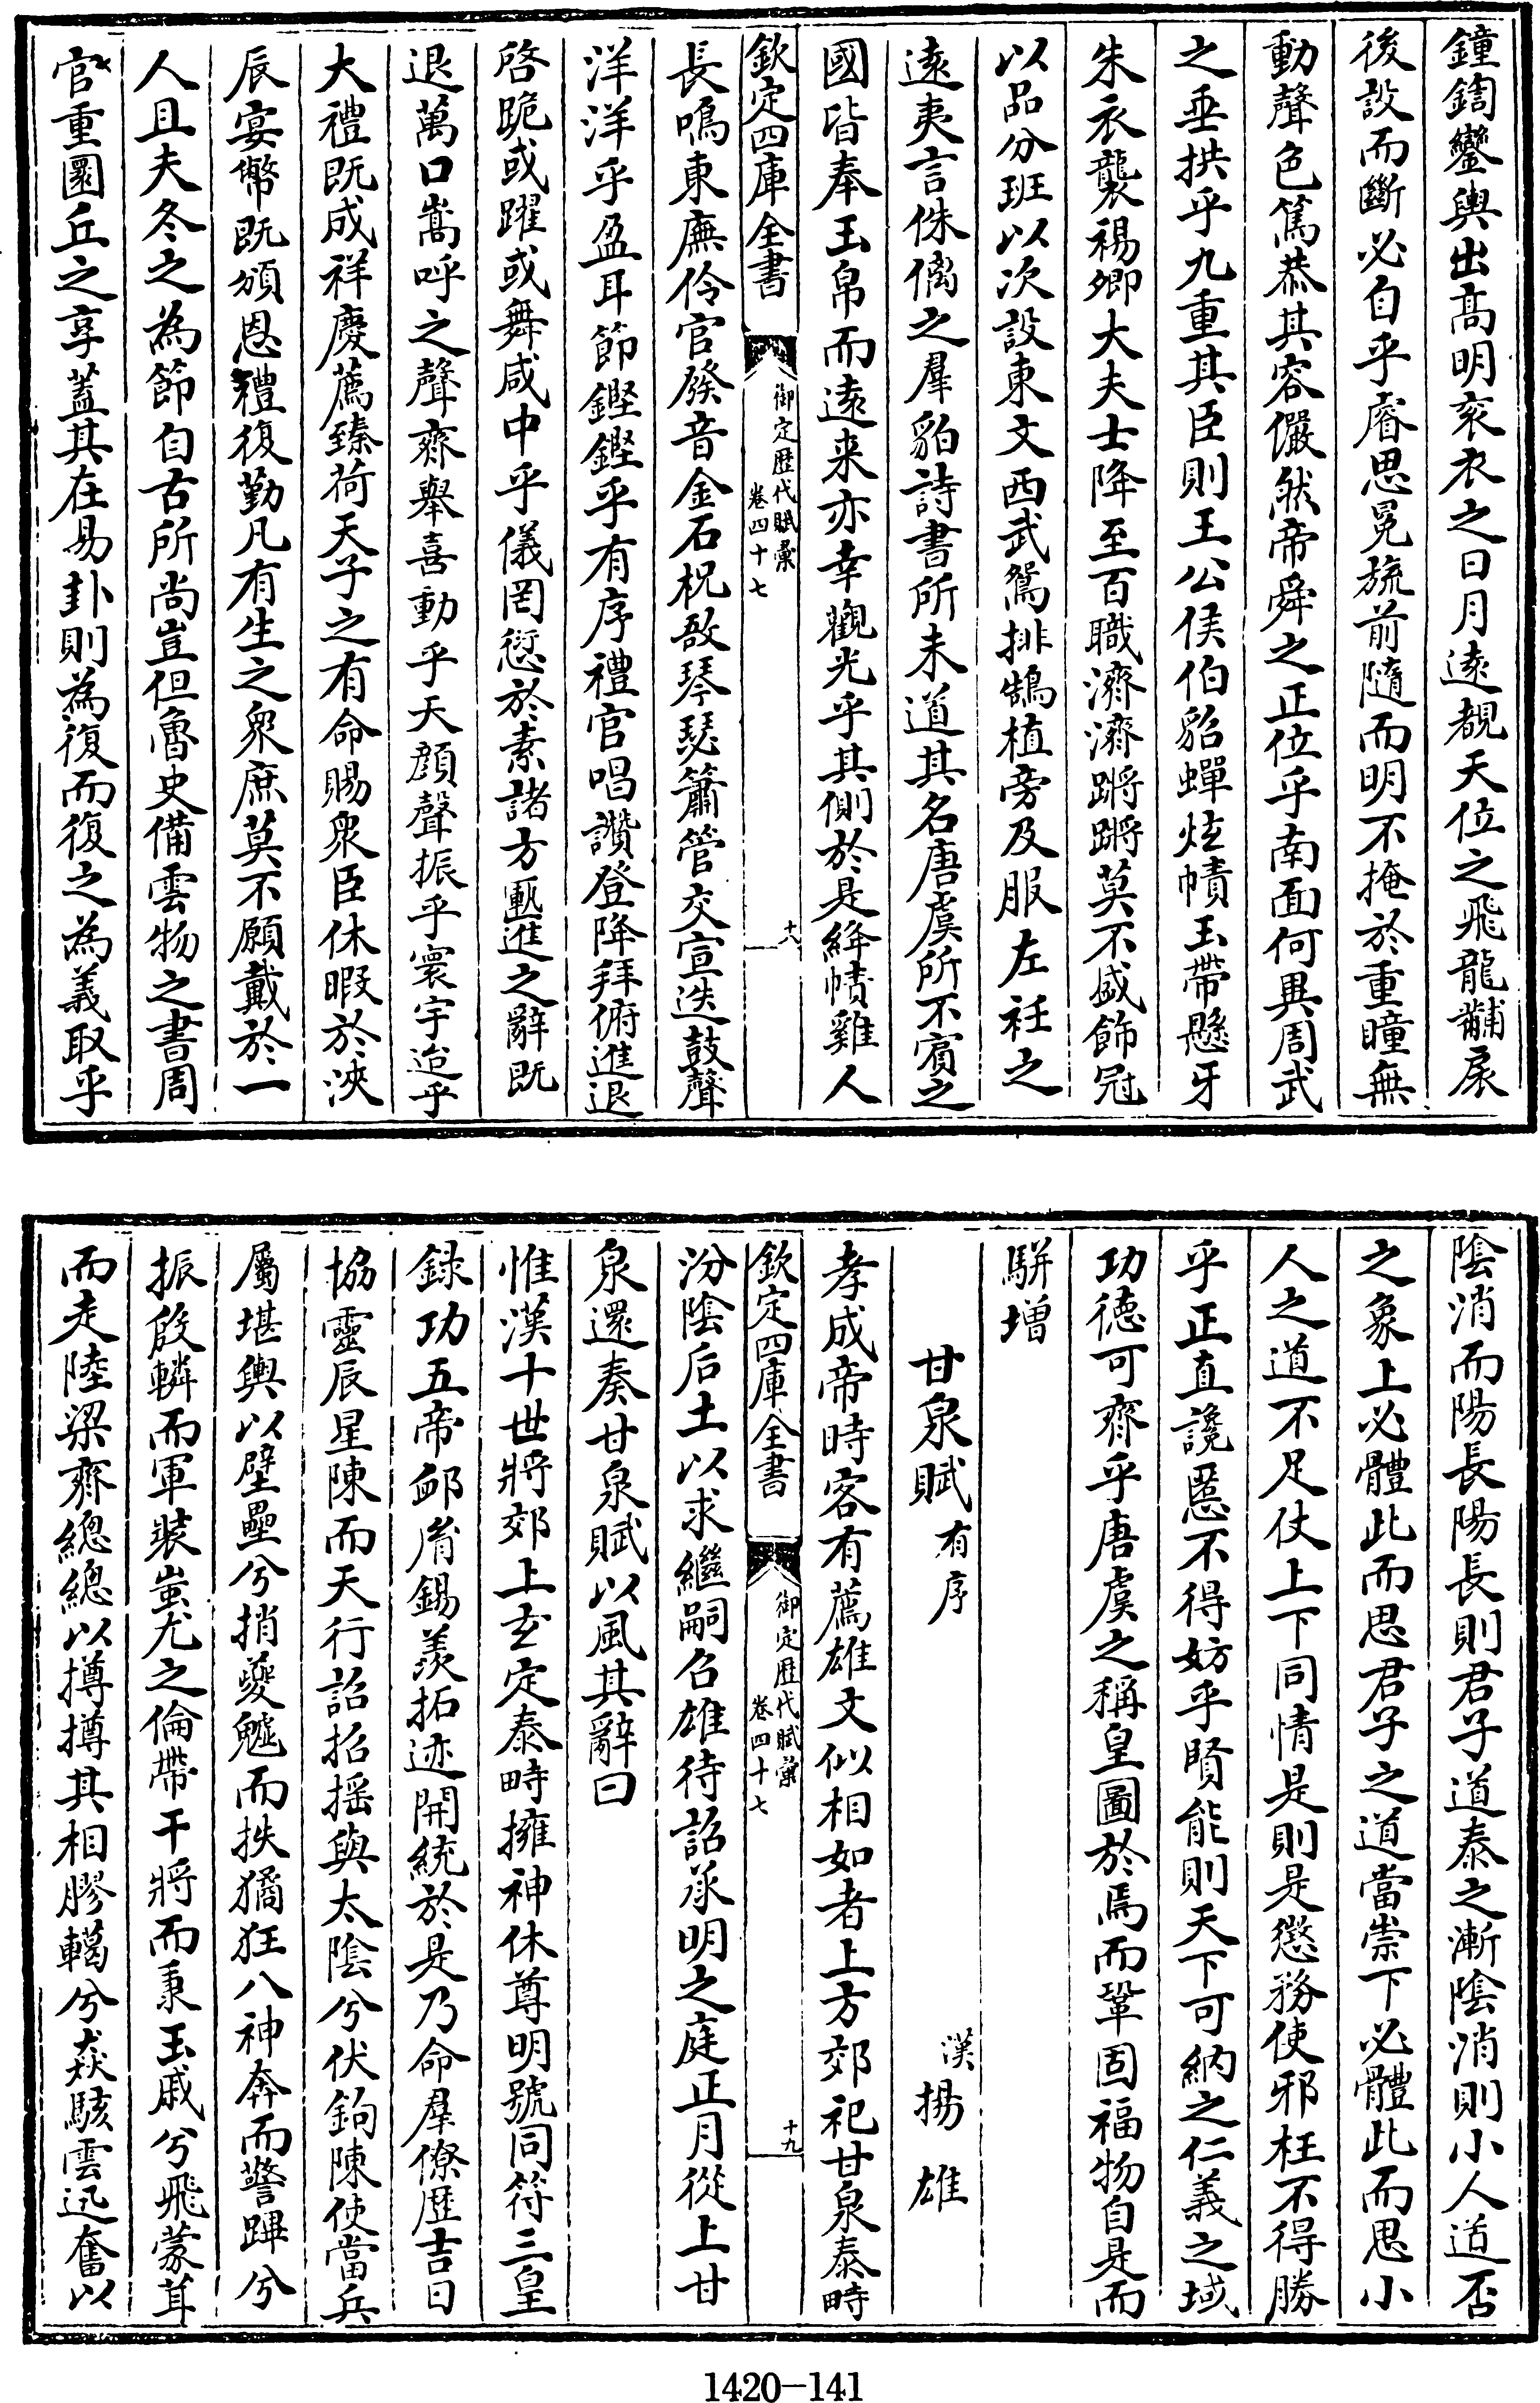 鐘鍧鑾輿出髙明衮衣之日月遠覩天位之飛龍黼扆
後設而斷必自乎睿思冕旒前隨而明不掩於重瞳無
動聲色篤恭其容儼然帝舜之正位乎南面何異周武
之垂拱乎九重其臣則王公侯伯貂蟬炫幘玉帶懸牙
朱衣襲裼卿大夫士降至百職濟濟蹡蹡莫不盛飾冠
以品分班以次設東文西武鴛排鵠植旁及服左衽之
遠夷言侏𠌯之羣貊詩書所未道其名唐虞所不賓之
國皆奉玉帛而遠来亦幸觀光乎其側於是絳幘雞人
欽定四庫全書
御定歴代賦彚
卷四十七
十八
長鳴東廡伶官發音金石柷敔琴瑟簫管交宣迭鼓聲
洋洋乎盈耳節鏗鏗乎有序禮官唱讚登降拜俯進退
啓跪或躍或舞咸中乎儀罔愆於素諸方輒進之辭既
退萬口嵩呼之聲齊舉喜動乎天顔聲振乎寰宇迨乎
大禮既成祥慶薦臻荷天子之有命賜衆臣休暇於浹
辰宴幣既頒恩禮復勤凡有生之衆庶莫不願戴於一
人且夫冬之為節自古所尚豈但魯史備雲物之書周
官重圜丘之享蓋其在易卦則為復而復之為義取乎
陰消而陽長陽長則君子道泰之漸陰消則小人道否
之象上必體此而思君子之道當崇下必體此而思小
人之道不足仗上下同情是則是懲務使邪枉不得勝
乎正直讒慝不得妨乎賢能則天下可納之仁義之域
功德可齊乎唐虞之稱皇圖於焉而鞏固福物自是而
駢增
甘泉賦有序　漢揚雄
孝成帝時客有薦雄文似相如者上方郊祀甘泉泰畤
欽定四庫全書
御定歴代賦彚
卷四十七
十九
汾陰后土以求繼嗣召雄待詔承明之庭正月從上甘
泉還奏甘泉賦以風其辭曰
惟漢十世將郊上玄定泰畤擁神休尊明號同符三皇
録功五帝卹𦙍錫羨拓迹開統於是乃命羣僚歴吉日
協靈辰星陳而天行詔招揺與太陰兮伏鉤陳使當兵
屬堪輿以壁壘兮捎夔魖而抶獝狂八神奔而警蹕兮
振殷轔而軍裝蚩尤之倫帶干將而秉玉戚兮飛蒙茸
而走陸梁齊總總以撙撙其相膠轕兮猋駭雲迅奮以
1420-141